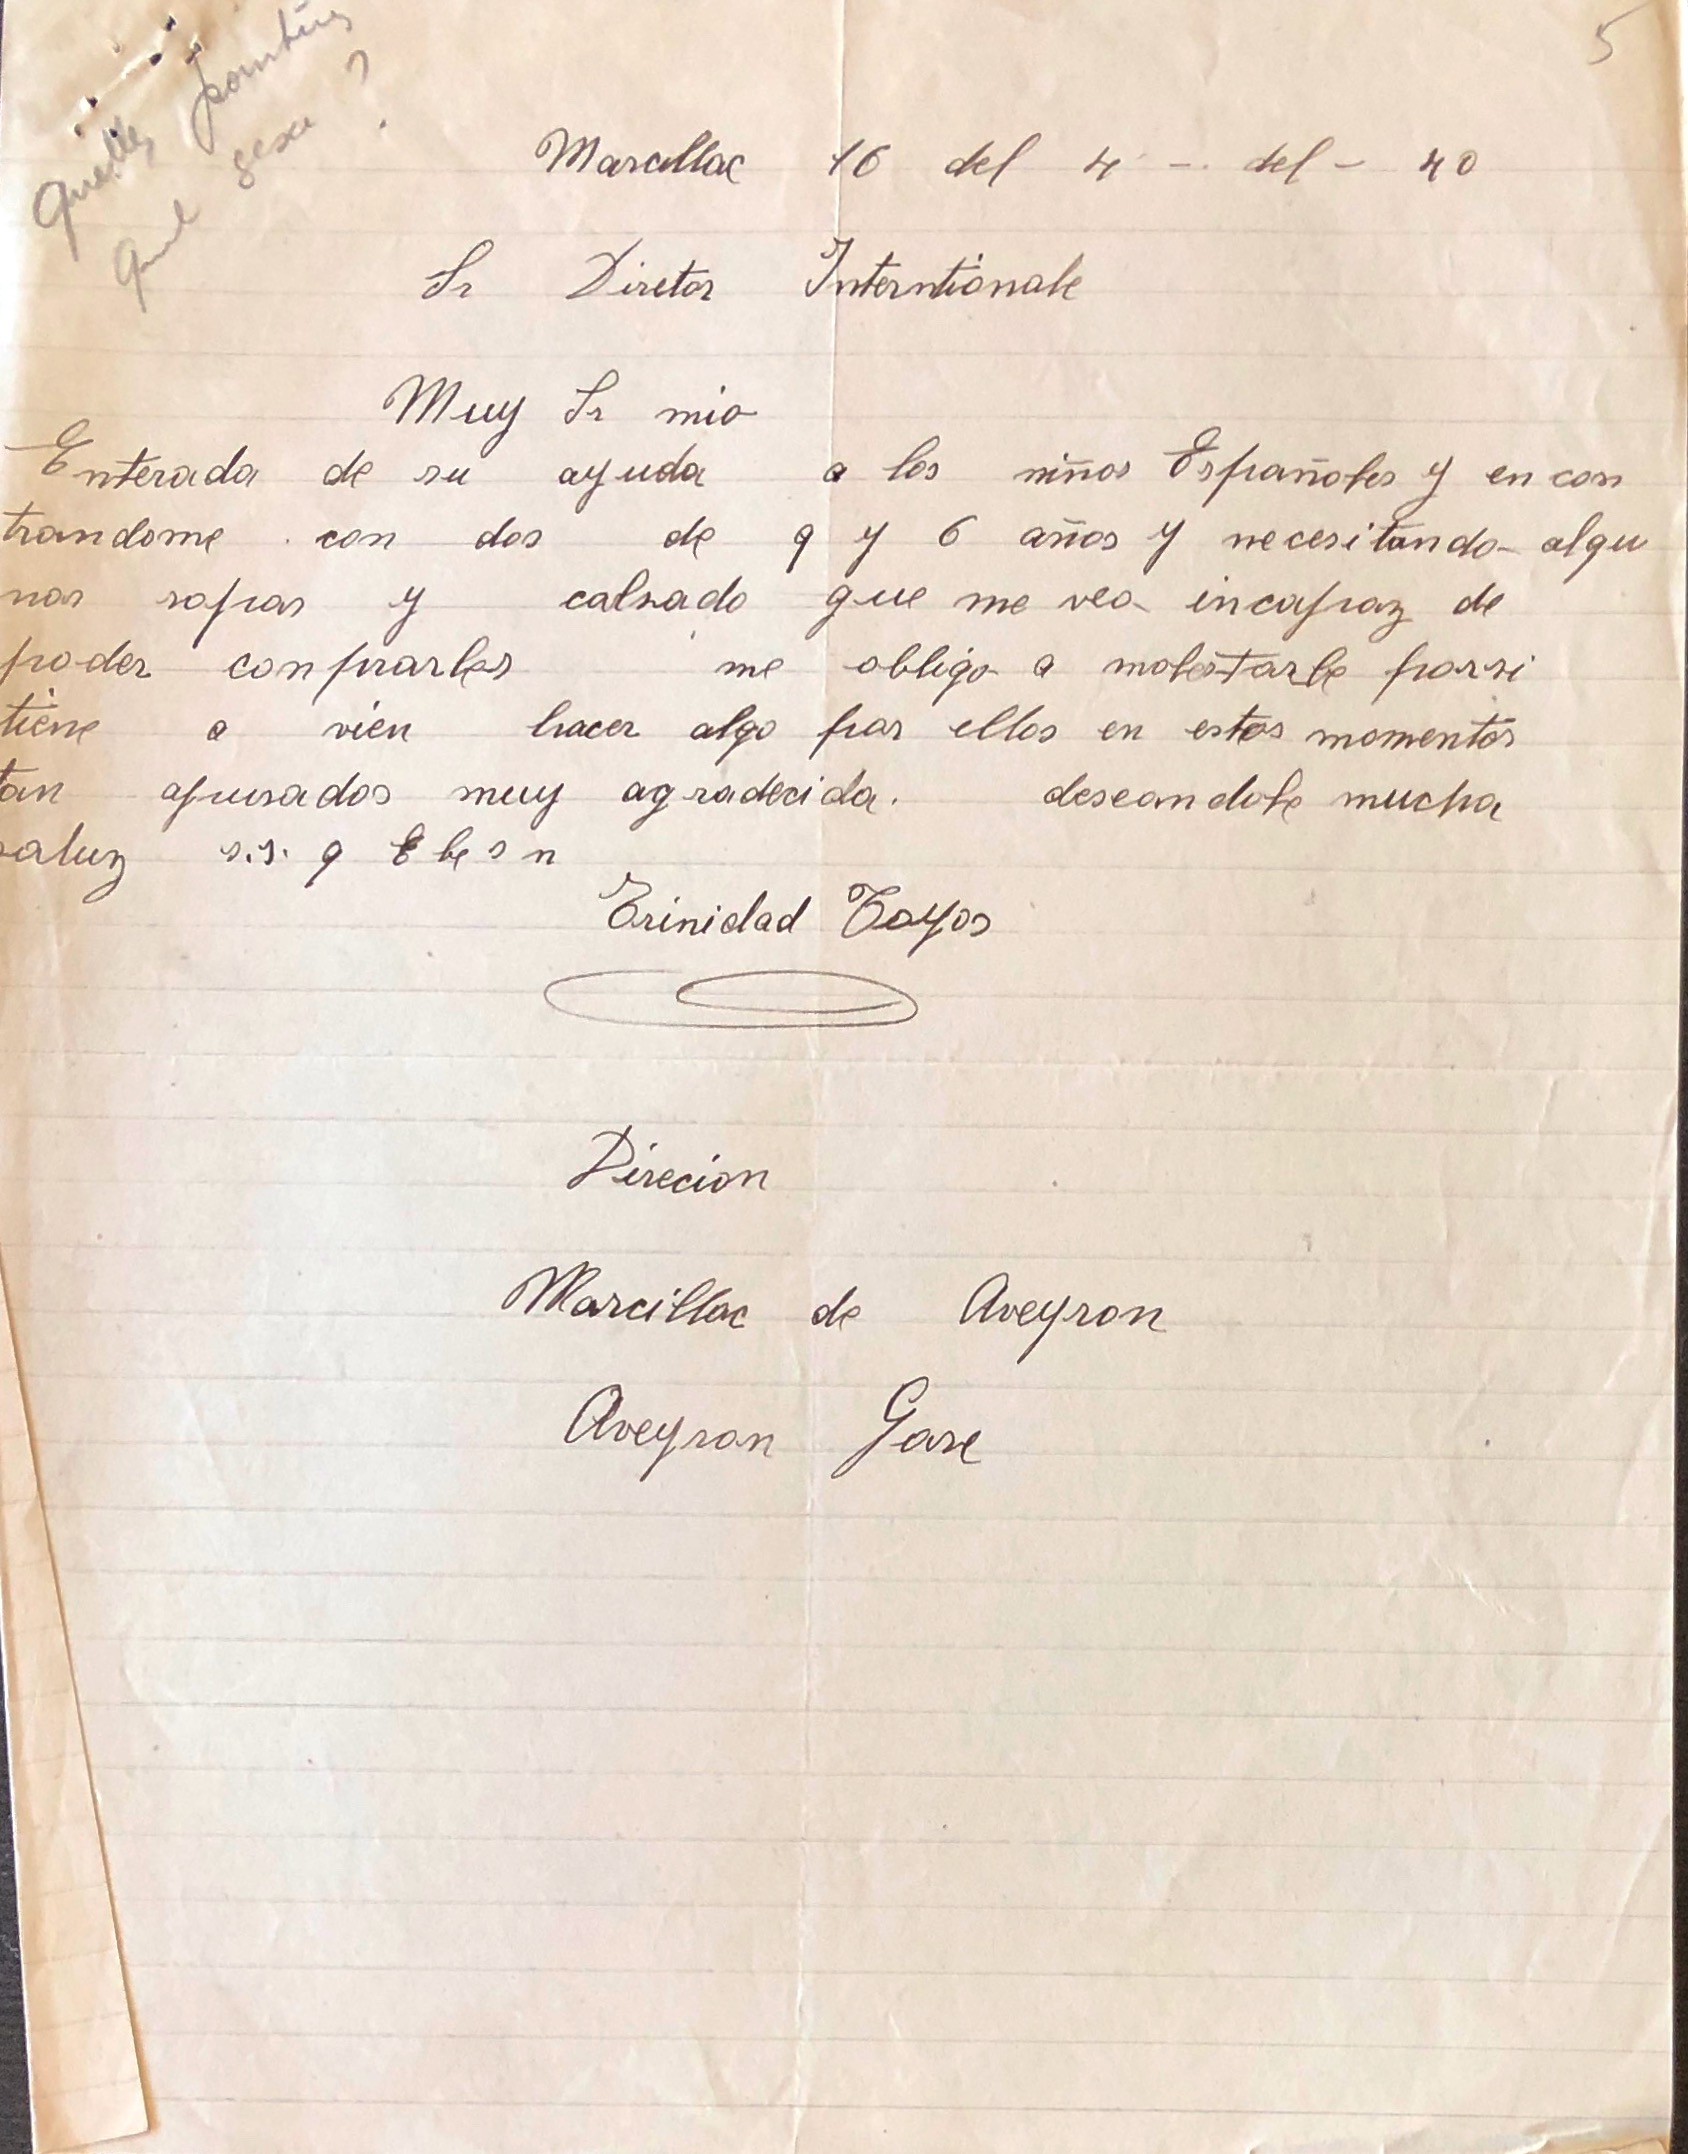 5
quelles pointures
quel sexe ?
Marcillac 16 del 4 - del - 40
Sr Diretor Interntionale
Muy Sr mio
Enterada de su ayuda a los niños Españoles y en con
trandome con dos de 9 y 6 años y necesitando algu
nas ropas y calsado que me veo incapaz de
poder conprarles me obligo a molestarle por si
tiene a vien hacer algo por ellos en estos momentos
tan apurados muy agradecida. deseandole mucha
saluz s.s. q E be s n
Trinidad Tayos
Direcion
Marcillac de Aveyron
Aveyron Gare